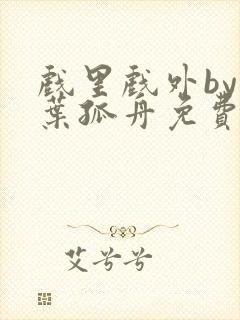 戲里戲外by一
葉孤舟免費
艾兮兮